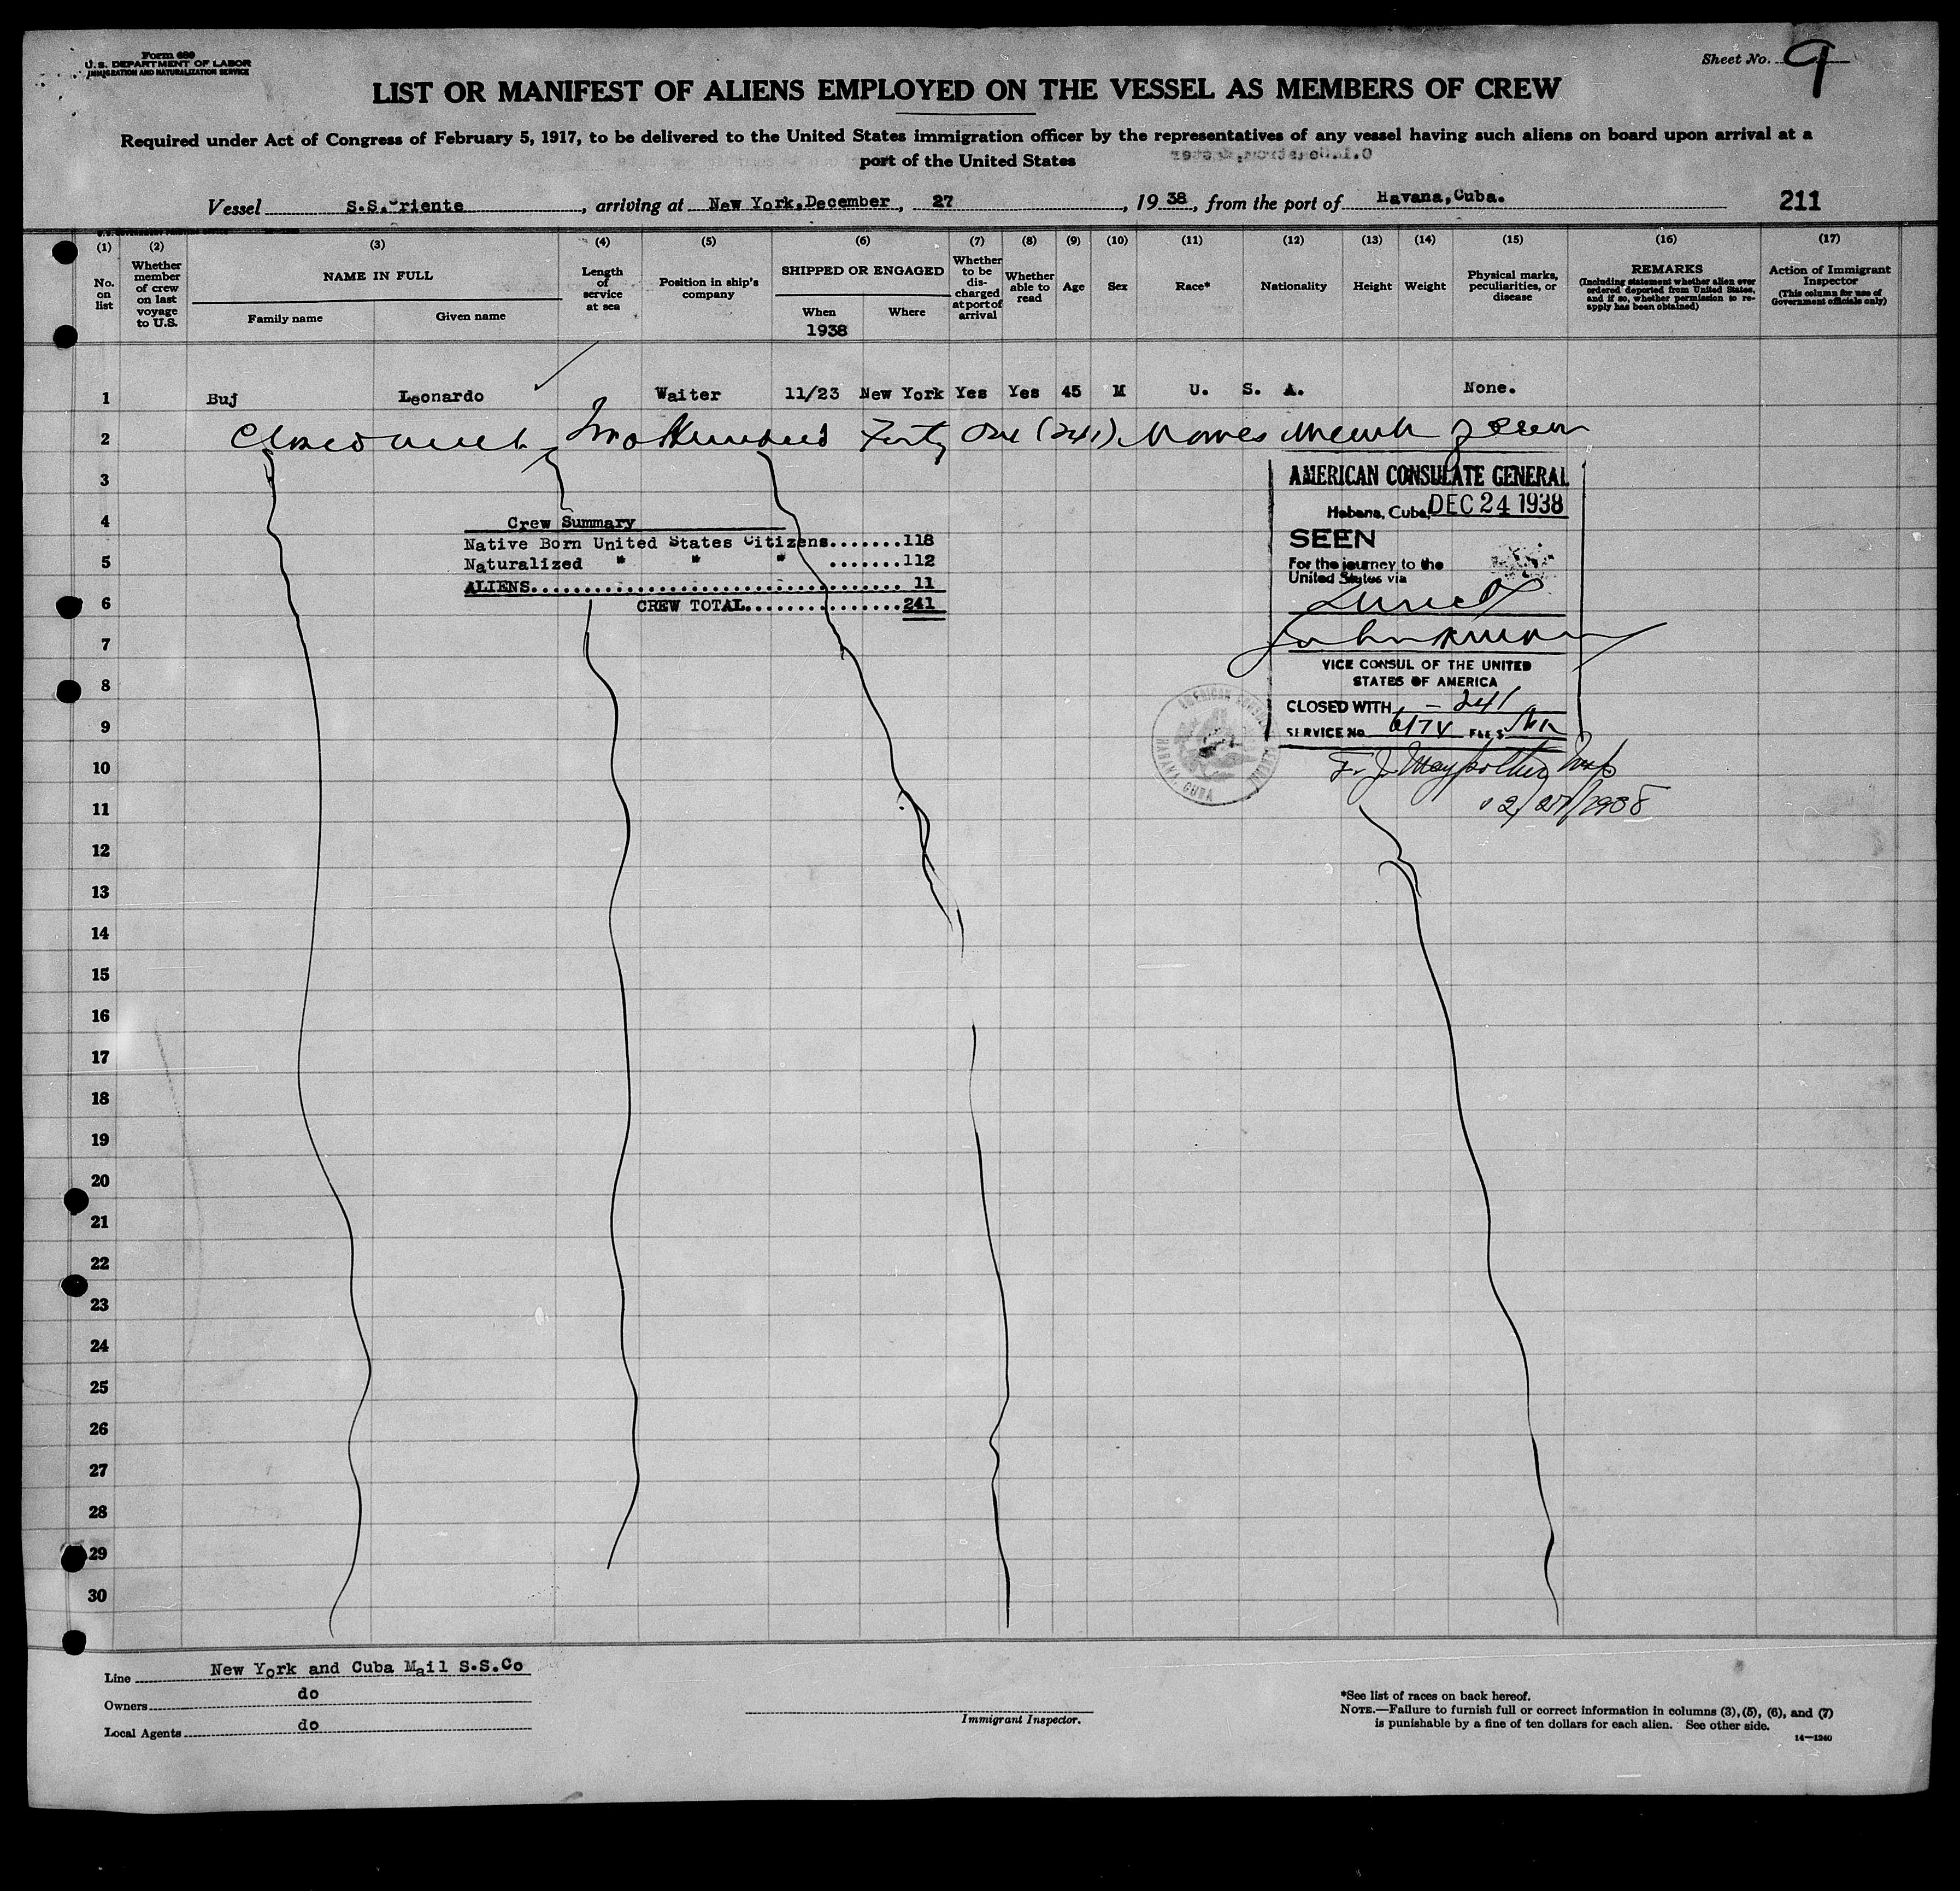 Form 680
U. S. DEPARTMENT OF LABOR
IMMIGRATION AND NATURALIZATION SERVICE
Sheet No. 9
LIST OR MANIFEST OF ALIENS EMPLOYED ON THE VESSEL AS MEMBERS OF CREW
Required under Act of Congress of February 5, 1917, to be delivered to the United States immigration officer by the representatives of any vessel having such aliens on board upon arrival at a
port of the United States
Vessel S.S.Oriente, arriving at New York,December, 27, 1938, from the port of Havana,Cuba. 211
(1) (2) (3) (4) (5) (6) (7) (8) (9) (10) (11) (12) (13) (14) (15) (16) (17)
No. on list
Whether member of crew on last voyage to U.S.
NAME IN FULL
Family name Given name
Length of service at sea
Position in ship's company
SHIPPED OR ENGAGED
When Where
1938
Whether to be discharged at port of arrival
Whether able to read
Age
Sex
Race*
Nationality
Height
Weight
Physical marks, peculiarities, or disease
REMARKS
(Including statement whether alien ever ordered deported from United States, and if so, whether permission to reapply has been obtained)
Action of Immigrant Inspector
(This column for use of Government officials only)
1 Buj Leonardo Waiter 11/23 New York Yes Yes 45 M U. S. A. None.
2 Closed with Two Hundred Forty One (241) Names
3
AMERICAN CONSULATE GENERAL
4
Habana, Cuba, DEC 24 1938
Crew Summary
SEEN
Native Born United States Citizens.......118
5
Naturalized " " " .......112
For the journey to the
United States via
ALIENS................................ 11
6
CREW TOTAL...............241
7
VICE CONSUL OF THE UNITED
STATES OF AMERICA
8
CLOSED WITH - 241
9
SERVICE No. 6174 FEES
AMERICAN CONSULATE GENERAL
HABANA, CUBA
10
11
12/27/1938
12
13
14
15
16
17
18
19
20
21
22
23
24
25
26
27
28
29
30
Line New York and Cuba Mail S.S.Co
Owners do
Local Agents do
Immigrant Inspector.
*See list of races on back hereof.
NOTE.—Failure to furnish full or correct information in columns (3), (5), (6), and (7)
is punishable by a fine of ten dollars for each alien. See other side.
14—1240